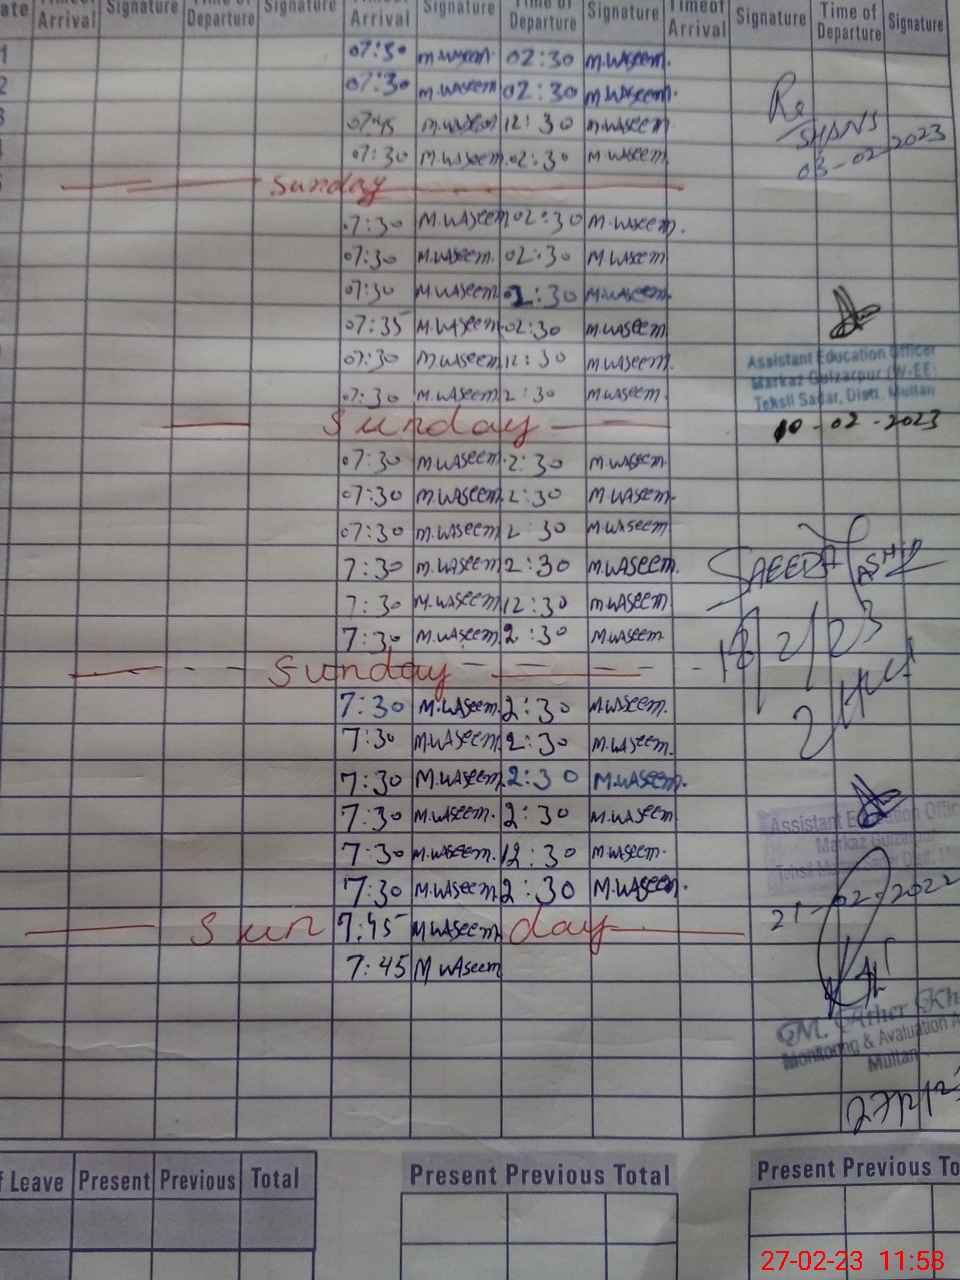 ate Arrival Signature Departure Signature Arrival Signature Time of Departure Signature Time of Arrival Signature Time of Departure Signature
1 07:30 M.WASeem 02:30 M.WASeem.
2 07:30 M.WASeem 02:30 M.WASeem.
3 07:45 M.WASeem 12:30 M.WASeem
07:30 M.WASeem 02:30 M WASeem
Sunday
7:30 M.WASeem 02:30 M.WASeem.
07:30 M.WASeem. 02:30 M WASeem
07:30 M.WASeem 02:30 M.WASeem
07:35 M.WASeem 02:30 M.WASeem
07:30 M.WASeem 12:30 M.WASeem
07:30 M.WASeem 2:30 M.WASeem
Sunday
07:30 M.WASeem 2:30 M.WASeem
07:30 M.WASeem 2:30 M.WASeem
07:30 M.WASeem 2:30 M.WASeem
7:30 M.WASeem 2:30 M.WASeem.
7:30 M.WASeem 12:30 M.WASeem
7:30 M.WASeem 2:30 M.WASeem
Sunday
7:30 M.WASeem. 2:30 M.WASeem.
7:30 M.WASeem 2:30 M.WASeem.
7:30 M.WASeem. 2:30 M.WASeem.
7:30 M.WASeem. 2:30 M.WASeem
7:30 M.WASeem. 12:30 M.WASeem.
7:30 M.WASeem 2:30 M.WASeem.
Sun 7:45 M WASeem day
7:45 M WASeem
03-02-2023
Assistant Education Officer
Markaz Gulzarpur (W-EE)
Tehsil Sadar, Distt. Multan
10-02-2023
SAEEDA
18/2/23
Assistant Education Offic
Markaz Gulzarpur
21-02-2022
M. Ather Kh
Monitoring & Evaluation A
Multan
27/2/23
f Leave Present Previous Total
Present Previous Total
Present Previous To
27-02-23 11:58